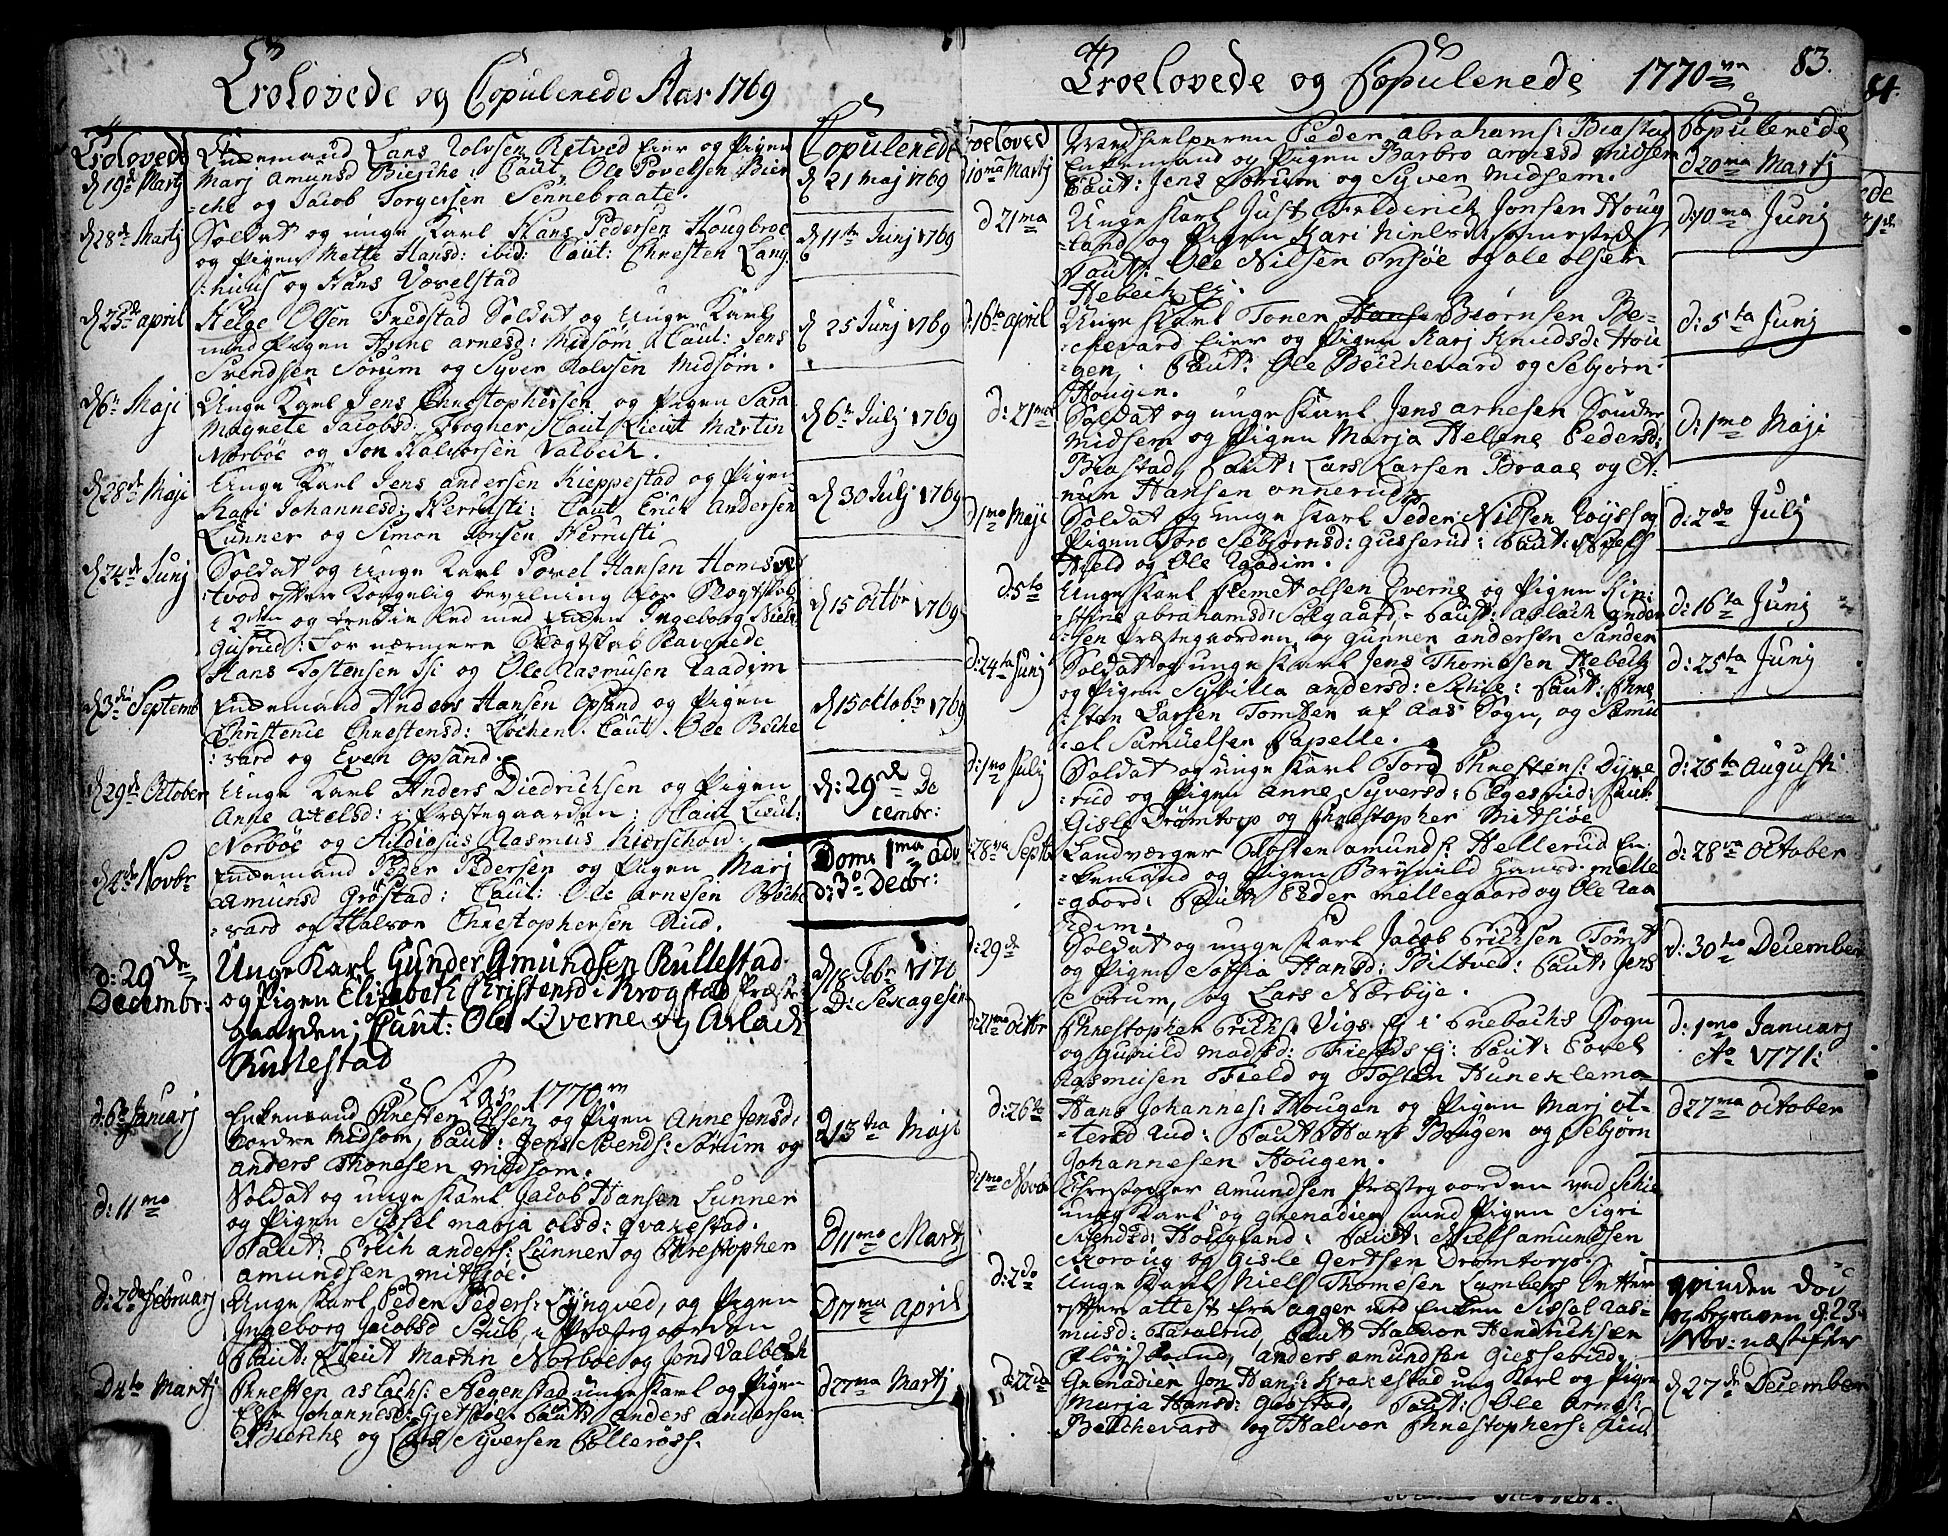 Trolovede og Copulerede Aar 1769
Trolovede
Copulerede
d 19de Martj
Enkemand Lars Rolvsen Ritved Eier og Pigen
Marj Amunsd Bierche: Caut, Ole Povelsen Bier
-che og Jacob Torgersen Sennebraate.
d 21 Maj 1769
d 28de Martj
Soldat og unge Karl Hans Pedersen Hougbroe
og Pigen Mette Hansd: ibid: Caut: Christen Lang
-huus og Hans Vovelstad
d 11te Junj 1769
d 23de april
Helge Olsen Fredstad Soldat og Unge Karl
med Pigen Anne Arnesd: Midsom, Caut: Jens
Svendsen Sørum og Syver Rolvsen Midsom.
d 25 Junj 1769
d 6te Maji
Unge Karl Jens Christophersen og Pigen Sara
Magnete Jacobsd: Frogner, Caut Lieut Martin
Norbøe og Jon Halvorsen Valbech.
d 6te Julj 1769
d 28de Maji
Unge Karl Jens Andersen Kieppestad og Pigen
Kari Johannesd: Herrusti: Caut Erich Andersen
Lunner og Simon Jonsen Herrusti
d 30 Julj 1769
d 24de Junj
Soldat og Unge Karl Povel Hansen
-tvod efter Kongelig bevilning for Slegtskab
i 2den og tredie Led med Ingeborg Niels
Gusrud: For nærmere Slegtskab Caverede
Hans Tostensen Isi og Ole Rasmusen Raadim
d 15 Octbr 1769
d 3die Septemb
Enkemand Anders Hansen Opsand og Pigen
Christenie Christensd: Løchen. Caut. Ole Beche
-vard og Even Opsand.
d 15 Octobr 1769
d 29de October
Unge Karl Anders Diedrichsen og Pigen
Anne Axelsd: i Præstegaarden: Caut Lieut:
Norbøe og Rasmus Kierschou:
d: 29de De
cembr:
d 4de Novbr
Enkemand Peder Pedersen og Pigen Marj
Amunsd Grøstad: Caut: Ole Arnesen Beche
-vard og Halvor Christophersen Rud.
Dom: 1ma adv
d: 3die Decbr:
d: 29de
Decembr:
Unge Karl Gunder Amundsen Rullestad
og Pigen Elisabeth Christensd: Krogstad Præste
gaarden; Caut: Ole Qverne og Aslach
Rullestad
d 18 Febr 1770
D: Sexagesim
Aar 1770
d: 6te Januarj
Enkemand Christen Olsen og Pigen Anne Jensd:
Nordre Midsom, Caut: Jens Svends: Sørum og
Anders Thoresen Midsom.
d 13tia Maji
d: 11mo
Soldat og unge Karl Jacob Hansen Lunner
og Pigen Sissel Marja Olsd: Qvakestad.
Caut: Erich Anders: Lunner og Christopher
Amundsen Mitsjøe.
d 11mo Martj
d: 2do Februarj
Unge Karl Peder Peders: Lyngved, og Pigen
Ingeborg Jacobsd Stub, i Præstegaarden
Caut: Lieut Martin Norbøe og Jond Valbech
d 17ma april
d 4to Martj
Christen Aslachs: Hegenstad unge Karl og Pigen
Else Johannesd: Gjetsjøe. Caut: Anders Andersen
Bierche og Lars Syversen Ellerøss.
d 27ma Martj
Troelovede og Copulerede 1770
83.
84.
Troeloved
Copulerede
d 10ma Martj
Medhielperen Peder Abrahams: Biastad
Enkemand og Pigen Barbro Arnesd Midsem
Caut: Jens Sørum og Syver Midsem.
d 20ma Martj
d 21ma
Unge Karl Just Frederich Jonsen Houg
-land og Pigen Kari Nielsd:
Caut: Ole Nilsen Ensøe og Ole Olsen
Hebech Ej:
d: 10ma Junj
d: 16to april
Unge Karl Toner Bjørnsen Be-
-chevard Eier og Pigen Karj Knudsd: Hou
-gen, Caut: Ole Beichevard og Sebjørn
Hougen.
d: 5ta Junj
d: 21ma
Soldat og unge Karl Jens Arnesen Sønder
Midsem og Pigen Marja Helene Pedersd:
Biastad, Caut: Lars Larsen Braae og A-
-mun Hansen Onnerud.
d: 1mo Maji
d 1mo Maji
Soldat og unge Karl Peder Nilsen Røyss og
Pigen Toro Sebjørnsd: Gusserud: Caut: Niels
Hield og Ole Raadim.
d: 2do Julj
d: 5to
Unge Karl Clemet Olsen Qverne og Pigen Kir-
-stine Abrahamsd: Solgaard. Caut: Aslach Ander
-sen Præstegaarden, og Gunner Andersen Sander
d: 16ta Junj
d: 24ta Junj
Soldat og unge Karl Jens Thomesen Hebech
og Pigen Sybilla Andersd: Skile: Caut: Chri
-sten Larsen Tomter af Aas Sogn, og Samu
-el Samuelsen Capelle.
d: 25ta Junj
d: 1mo Julj
Soldat og unge Karl Tord Christens: Dyre
-rud og Pigen Anne Syversd: Egerud: Caut.
Gisle Drømtorp og Christopher Mitsiøe
d: 25ta Augusti
d: 28va Septb
Landværger Tosten Amunds: Hellerud En-
-kemand og Pigen Brynild Hansd: Melle
-gaard: Caut: Peder Mellegaard og Ole Raa
dim.
d: 28va October
d: 29de
Soldat og unge Karl Jacob Erichsen Tomt
og Pigen Soffia Hansd: Biltved: Caut: Jens
Sørum, og Lars Norbye.
d: 30tio December
d: 21mo Octbr
Christopher Erichs: Vigs Ej i Enebachs Sogn
og Gunild Madsd: Fields Ej: Caut: Povel
Rasmusen Field og Tosten Huneklema
d: 1mo Januarj
Ao 1771:
d: 26to
Hans Johannes: Hougen og Pigen Marj Ot-
-tersd Rud: Caut: Hans Hougen og Sebjørn
Johannesen Hougen.
d 27ma October
d: 1mo Novbr
Christopher Amundsen Præstegaarden ved Schie
ung Karl og Grenadier med Pigen Sigri
Svendsd: Hougland: Caut: Niels Amundsen
Kroroug og Gisle Gertsen Drømtorp.
d: 2do
Unge Karl Niels Thomesen Lambers Sætter
efter attest fra Agger med Enken Sissel Ras-
musd: Taralrud, Caut Halvor Hendrichsen
Fløysbaand, Anders Amundsen Giesserud.
Qvinden død
og begraven d. 23
Nov: næstefter
d: 22do
Grenadier Jon Hans: Krakestad ung Karl og Pigen
Marja Hansd: Grøstad, Caut: Ole Arnes:
Beichevard og Halvor Christophers: Rud
d 27de December